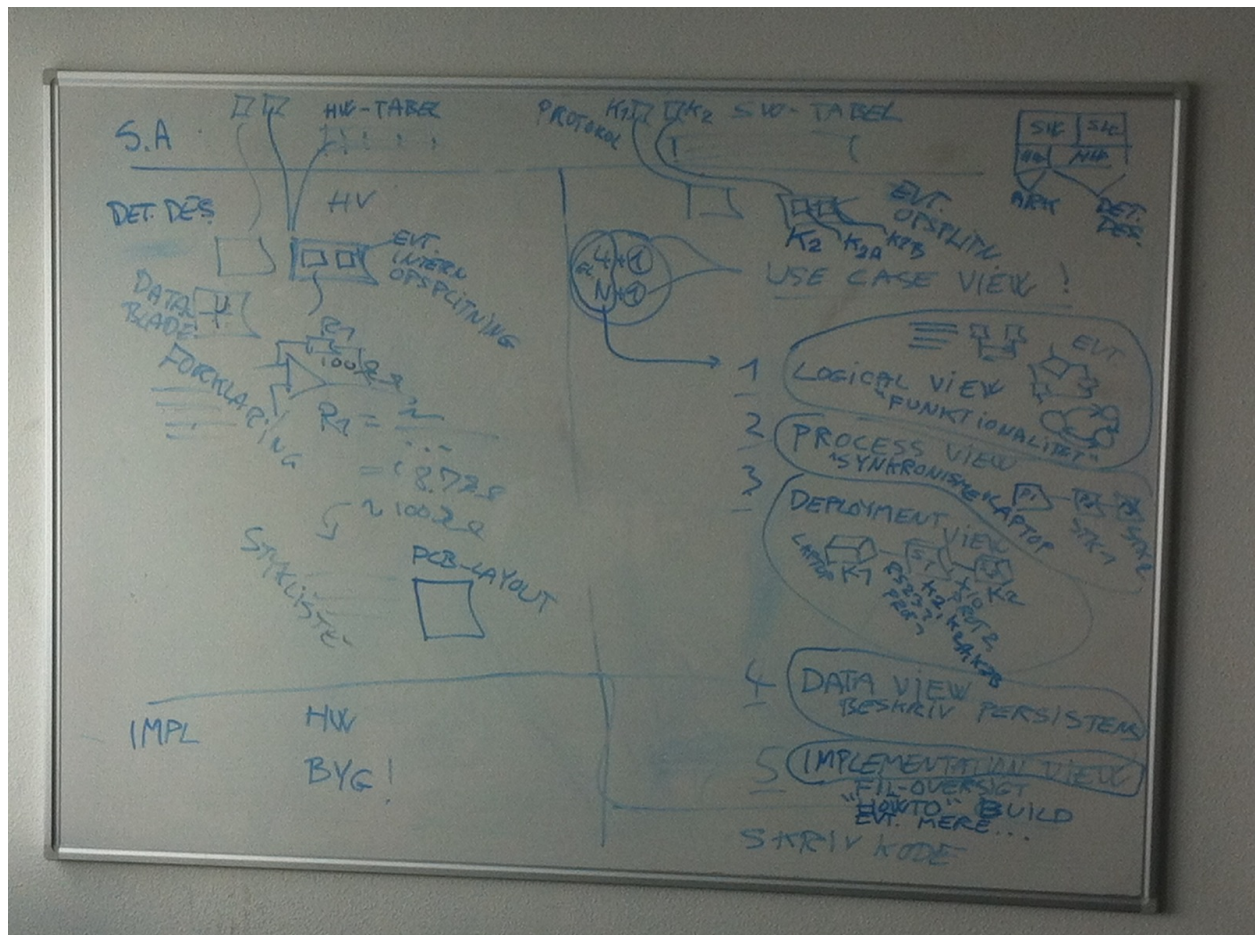 S.A
HW-TABEL
PROTOKOL
K1
K2
SW-TABEL
ARK
DET.
DES.
DET. DES.
HV
EVT.
INTERN
OPSPLITNING
DATA
BLADE
FORKLARING
R1
100Ω
R1 =
...
~ 100Ω
STYKLISTE
PCB-LAYOUT
K2
K2A
K2B
EVT.
OPSPLITN.
4+1
N+1
USE CASE VIEW!
1
EVT
LOGICAL VIEW
"FUNKTIONALITET"
2
PROCESS VIEW
"SYNKRONISME"
LAPTOP
P1
3
DEPLOYMENT
VIEW
LAPTOP
K1
K2
RS232
PROT 1
K2
PROT 2
K2A, K2B
4
DATA VIEW
BESKRIV PERSISTENS
5
IMPLEMENTATION VIEW
FIL-OVERSIGT
"HOWTO" BUILD
EVT. MERE...
SKRIV KODE
IMPL
HW
BYG!